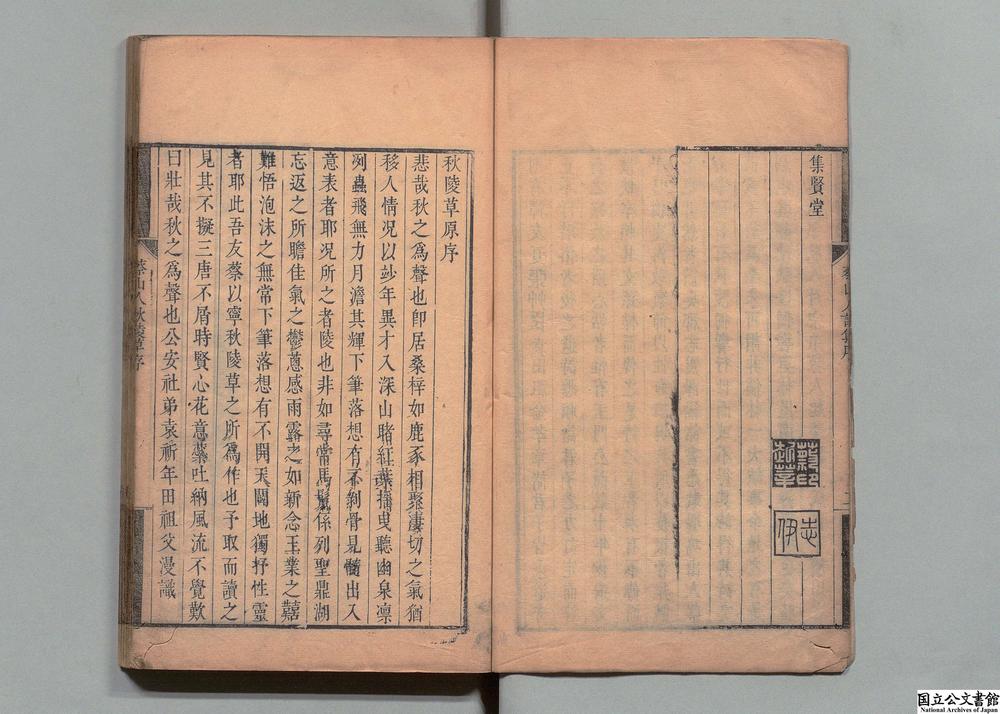 集賢堂
志伊
秋陵草原序
悲哉秋之為聲也卽居桑梓如鹿豕相聚淒切之氣猶
移人情况以妙年異才入深山睹紅葉搖曳聽幽泉凛
冽蟲飛無力月澹其輝下筆落想有不剝骨見髓出入
意表者耶况所之者陵也非如尋常馬鬛係列聖鼎湖
忘返之所瞻佳氣之欝蔥感雨露之如新念王業之囏
難悟泡沫之無常下筆落想有不開天闢地獨抒性靈
者耶此吾友蔡以寧秋陵草之所為作也予取而讀之
見其不擬三唐不屑時賢心花意蘂吐納風流不覺歎
曰壯哉秋之為聲也公安社弟袁祈年田祖父漫識
蔡山人秋陵草序
国立公文書館
National Archives of Japan